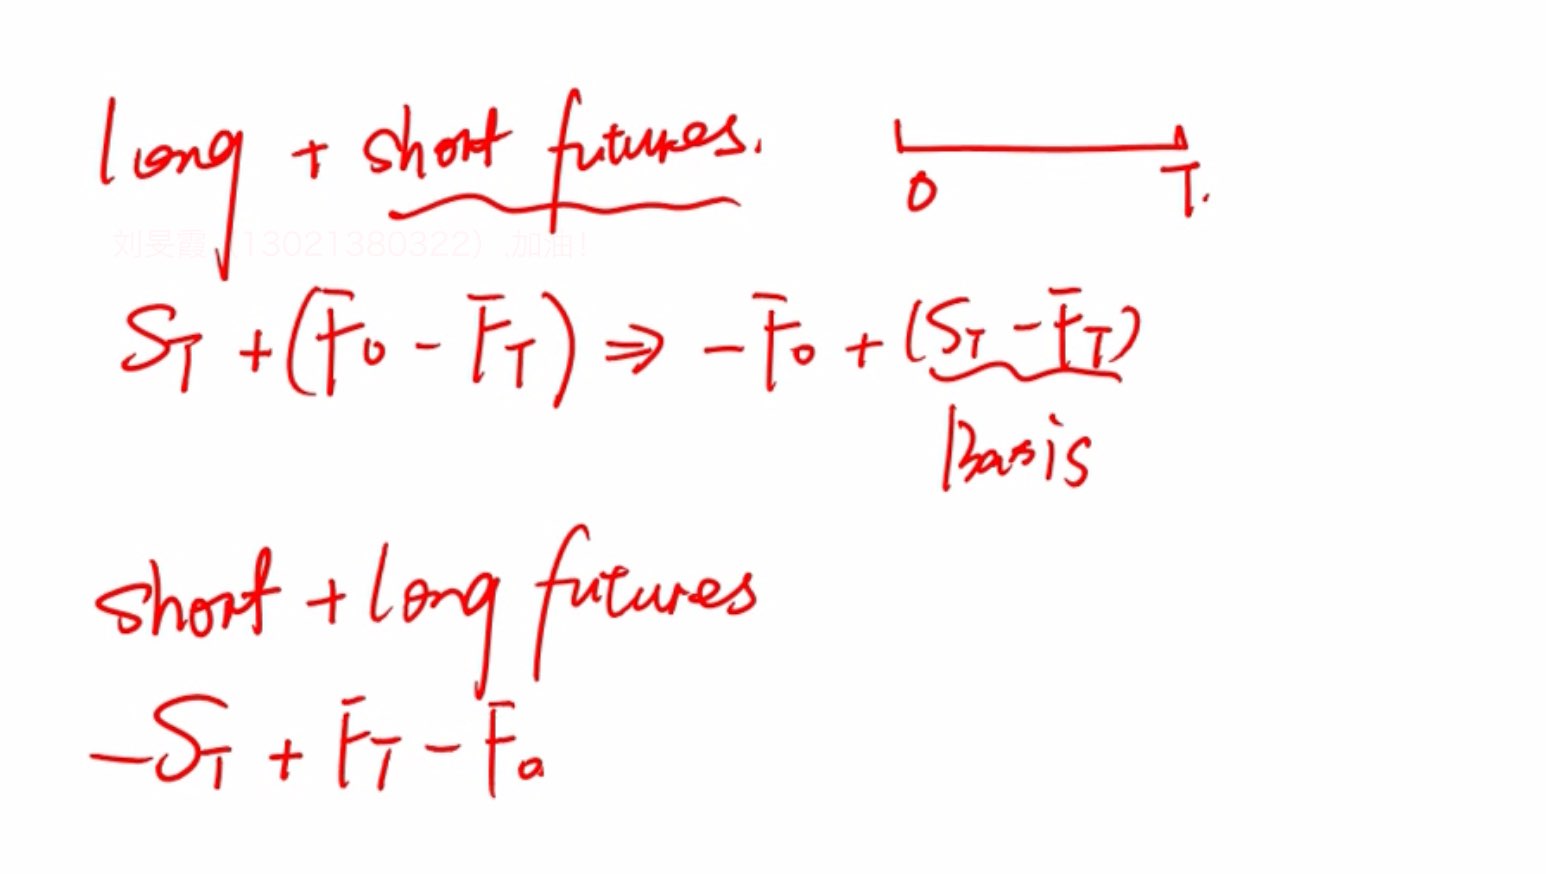 long + short futures.
0 T.
刘旻霞（13021380322）,加油！
S_T + (F_0 - F_T) ⇒ -F_0 + (S_T - F_T)
Basis
short + long futures
-S_T + F_T - F_0